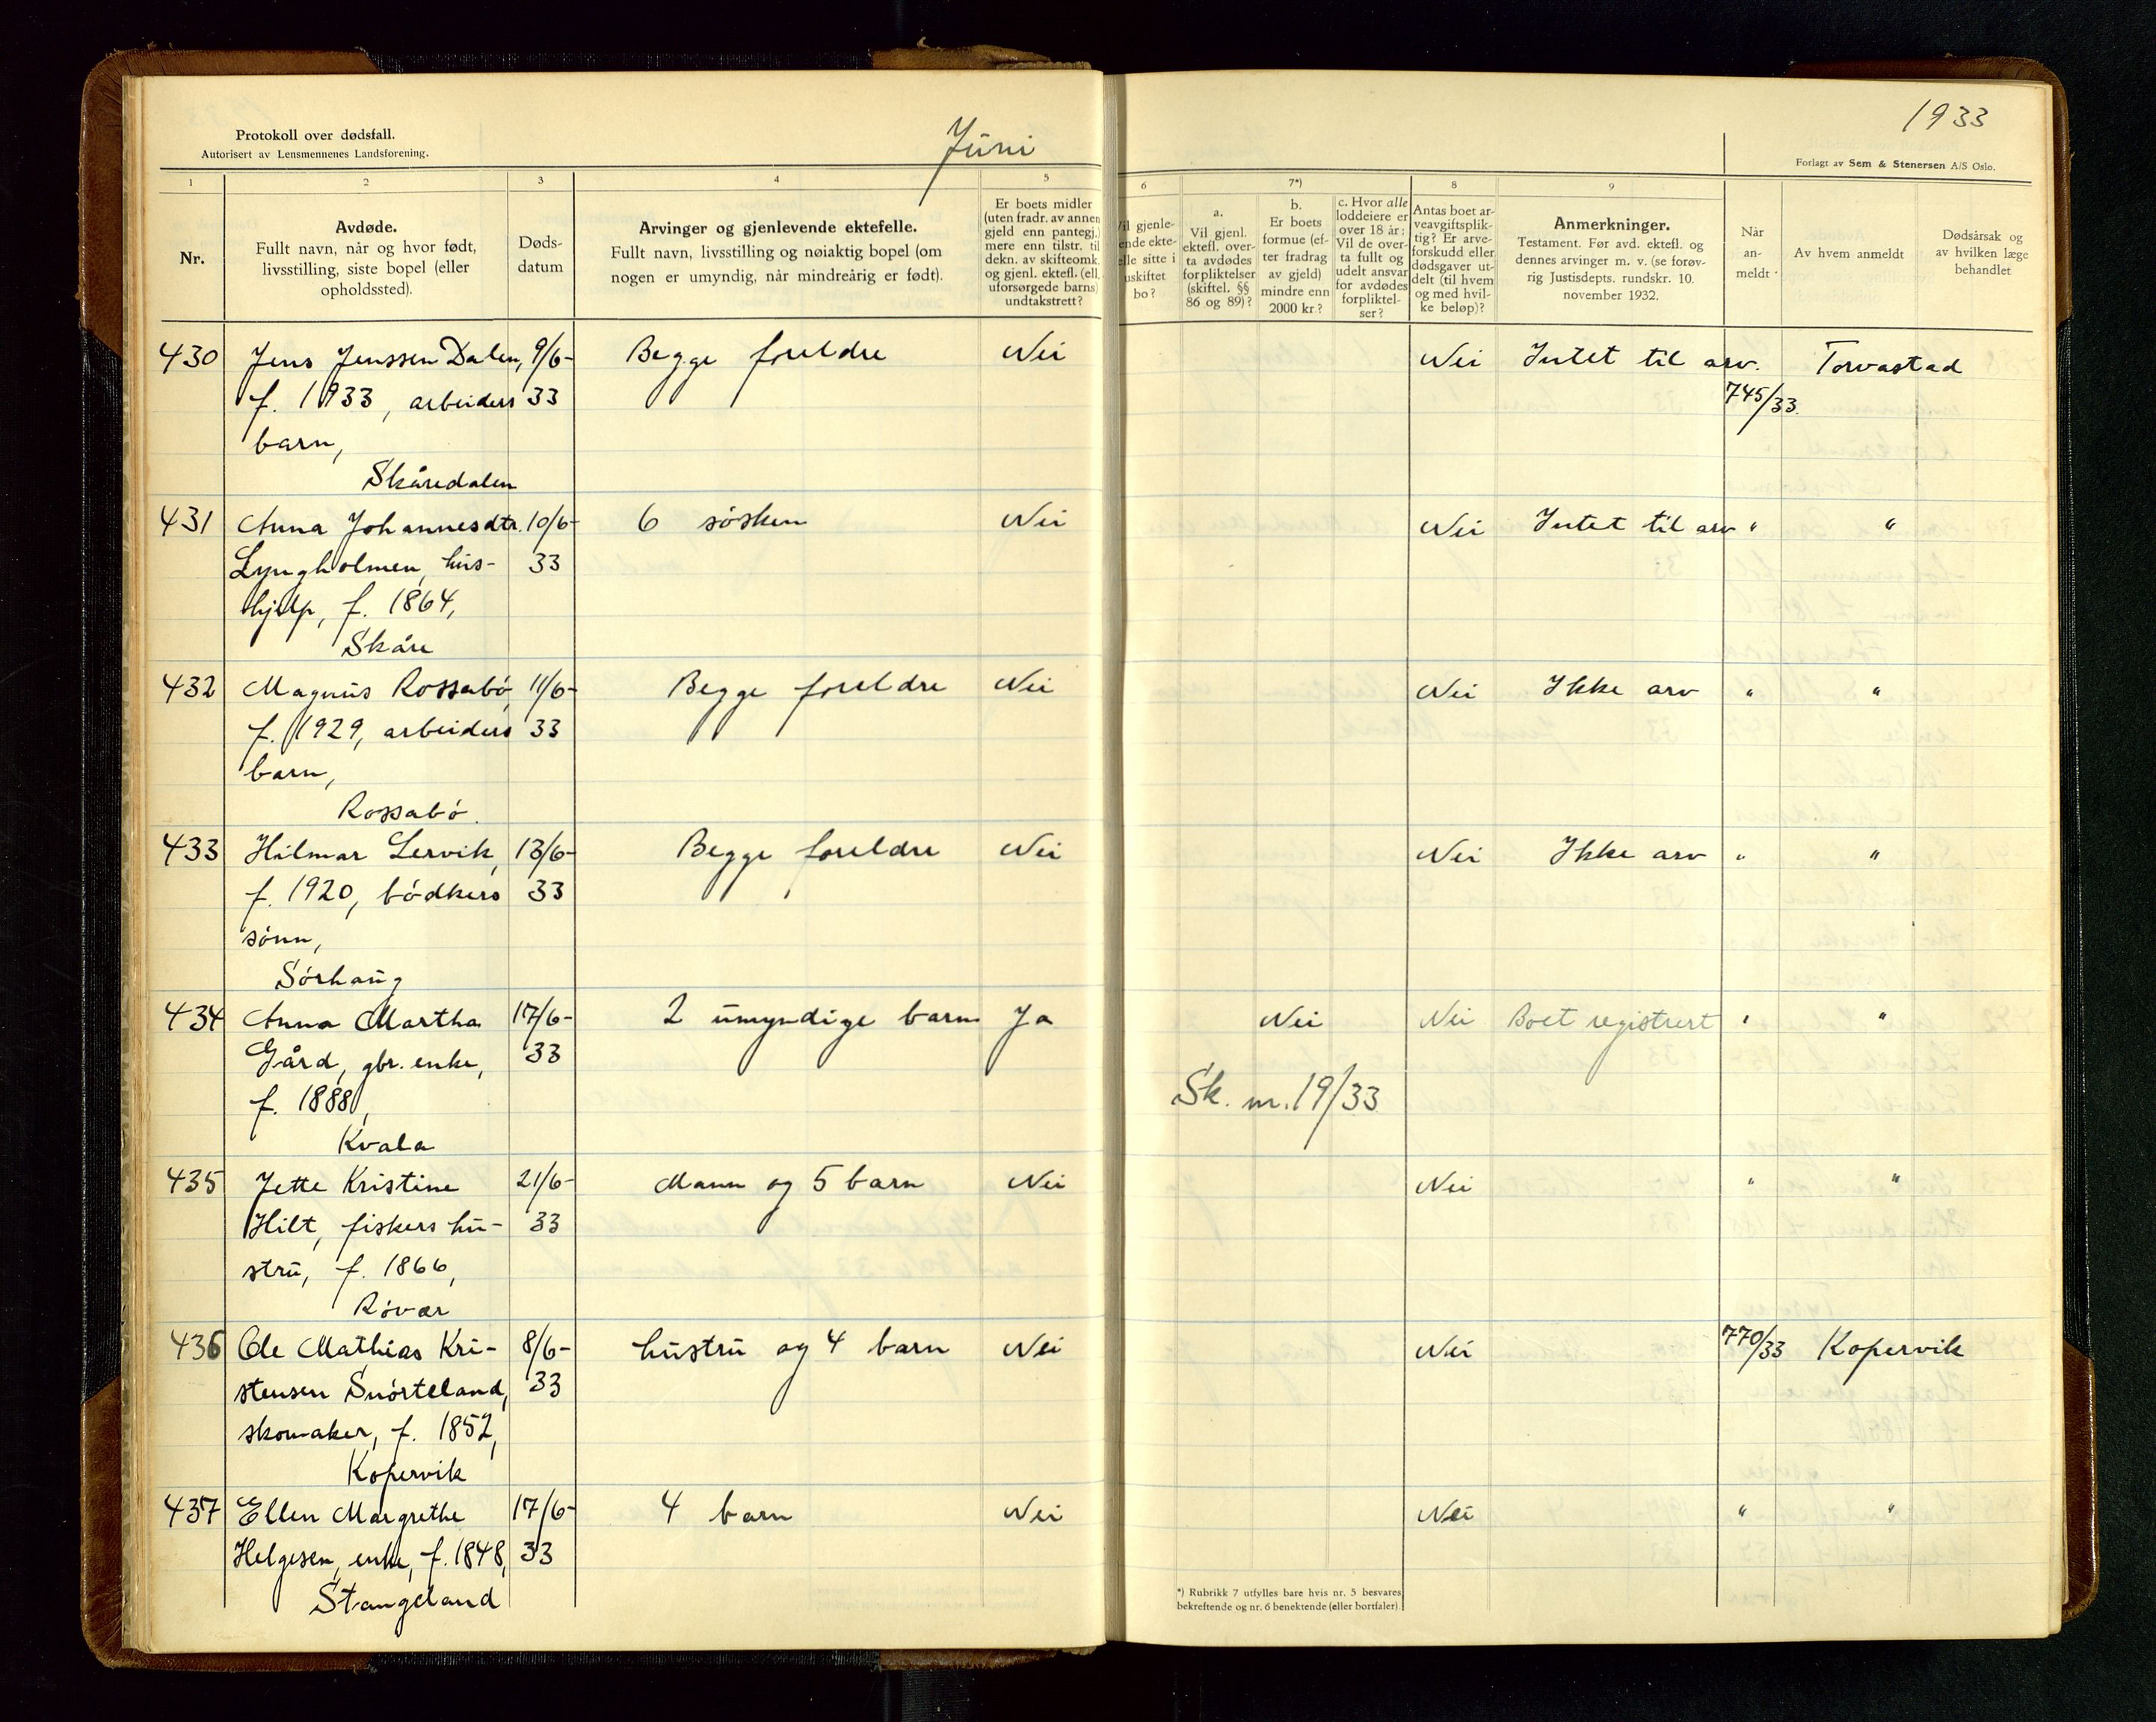 Protokoll over dødsfall.
Autorisert av Lensmennenes Landsforening.
Juni
1933
Forlagt av Sem & Stenersen A/S Oslo.
1 2 3 4 5 6 7*) 8 9
Nr.
Avdøde.
Fullt navn, når og hvor født,
livsstilling, siste bopel (eller
opholdssted).
Døds-
datum
Arvinger og gjenlevende ektefelle.
Fullt navn, livsstilling og nøiaktig bopel (om
nogen er umyndig, når mindreårig er født).
Er boets midler
(uten fradr. av annen
gjeld enn pantegj.)
mere enn tilstr. til
dekn. av skifteomk.
og gjenl. ektefl. (ell.
uforsørgede barns)
undtakstrett?
Vil gjenle-
ende ekte-
elle sitte i
uskiftet
bo?
a.
Vil gjenl.
ektefl. over-
ta avdødes
forpliktelser
(skiftel. §§
86 og 89)?
b.
Er boets
formue (ef-
ter fradrag
av gjeld)
mindre enn
2000 kr.?
c. Hvor alle
loddeiere er
over 18 år:
Vil de over-
ta fullt og
udelt ansvar
for avdødes
forpliktel-
ser?
Antas boet ar-
veavgiftsplik-
tig? Er arve-
forskudd eller
dødsgaver ut-
delt (til hvem
og med hvil-
ke beløp)?
Anmerkninger.
Testament. Før avd. ektefl. og
dennes arvinger m. v. (se forøv-
rig Justisdepts. rundskr. 10.
november 1932.
Når
an-
meldt
Av hvem anmeldt
Dødsårsak og
av hvilken læge
behandlet
430 Jens Jenssen Dalen, 9/6- Begge foreldre Nei Nei Intet til arv. Torvastad
f. 1933, arbeiders 33 745/33.
barn,
Skåredalen
431 Anna Johannesdtr. 10/6- 6 søsken Nei Nei Intet til arv " "
Lyngholmen, hus- 33
hjelp, f. 1864,
Skåre
432 Magnus Rossabø, 11/6- Begge foreldre Nei Nei Ikke arv " "
f. 1929, arbeiders 33
barn,
Rossabø.
433 Hilmar Lervik, 13/6- Begge foreldre Nei Nei Ikke arv " "
f. 1920, bødkers 33
sønn,
Sørhaug
434 Anna Martha 17/6- 2 umyndige barn Ja Nei Nei Boet registrert " "
Gård, gbr. enke, 33
f. 1888, Sk. nr. 19/33
Kvala
435 Jette Kristine 21/6- Mann og 5 barn Nei Nei " "
Hilt, fiskers hu- 33
stru, f. 1866,
Røvær
436 Ole Mathias Kri- 8/6- hustru og 4 barn Nei Nei 770/33 Kopervik
stensen Snørteland, 33
skomaker, f. 1852,
Kopervik
437 Ellen Margrethe 17/6- 4 barn Nei Nei " "
Helgesen, enke, f. 1848, 33
Stangeland
*) Rubrikk 7 utfylles bare hvis nr. 5 besvares
bekreftende og nr. 6 benektende (eller bortfaler).